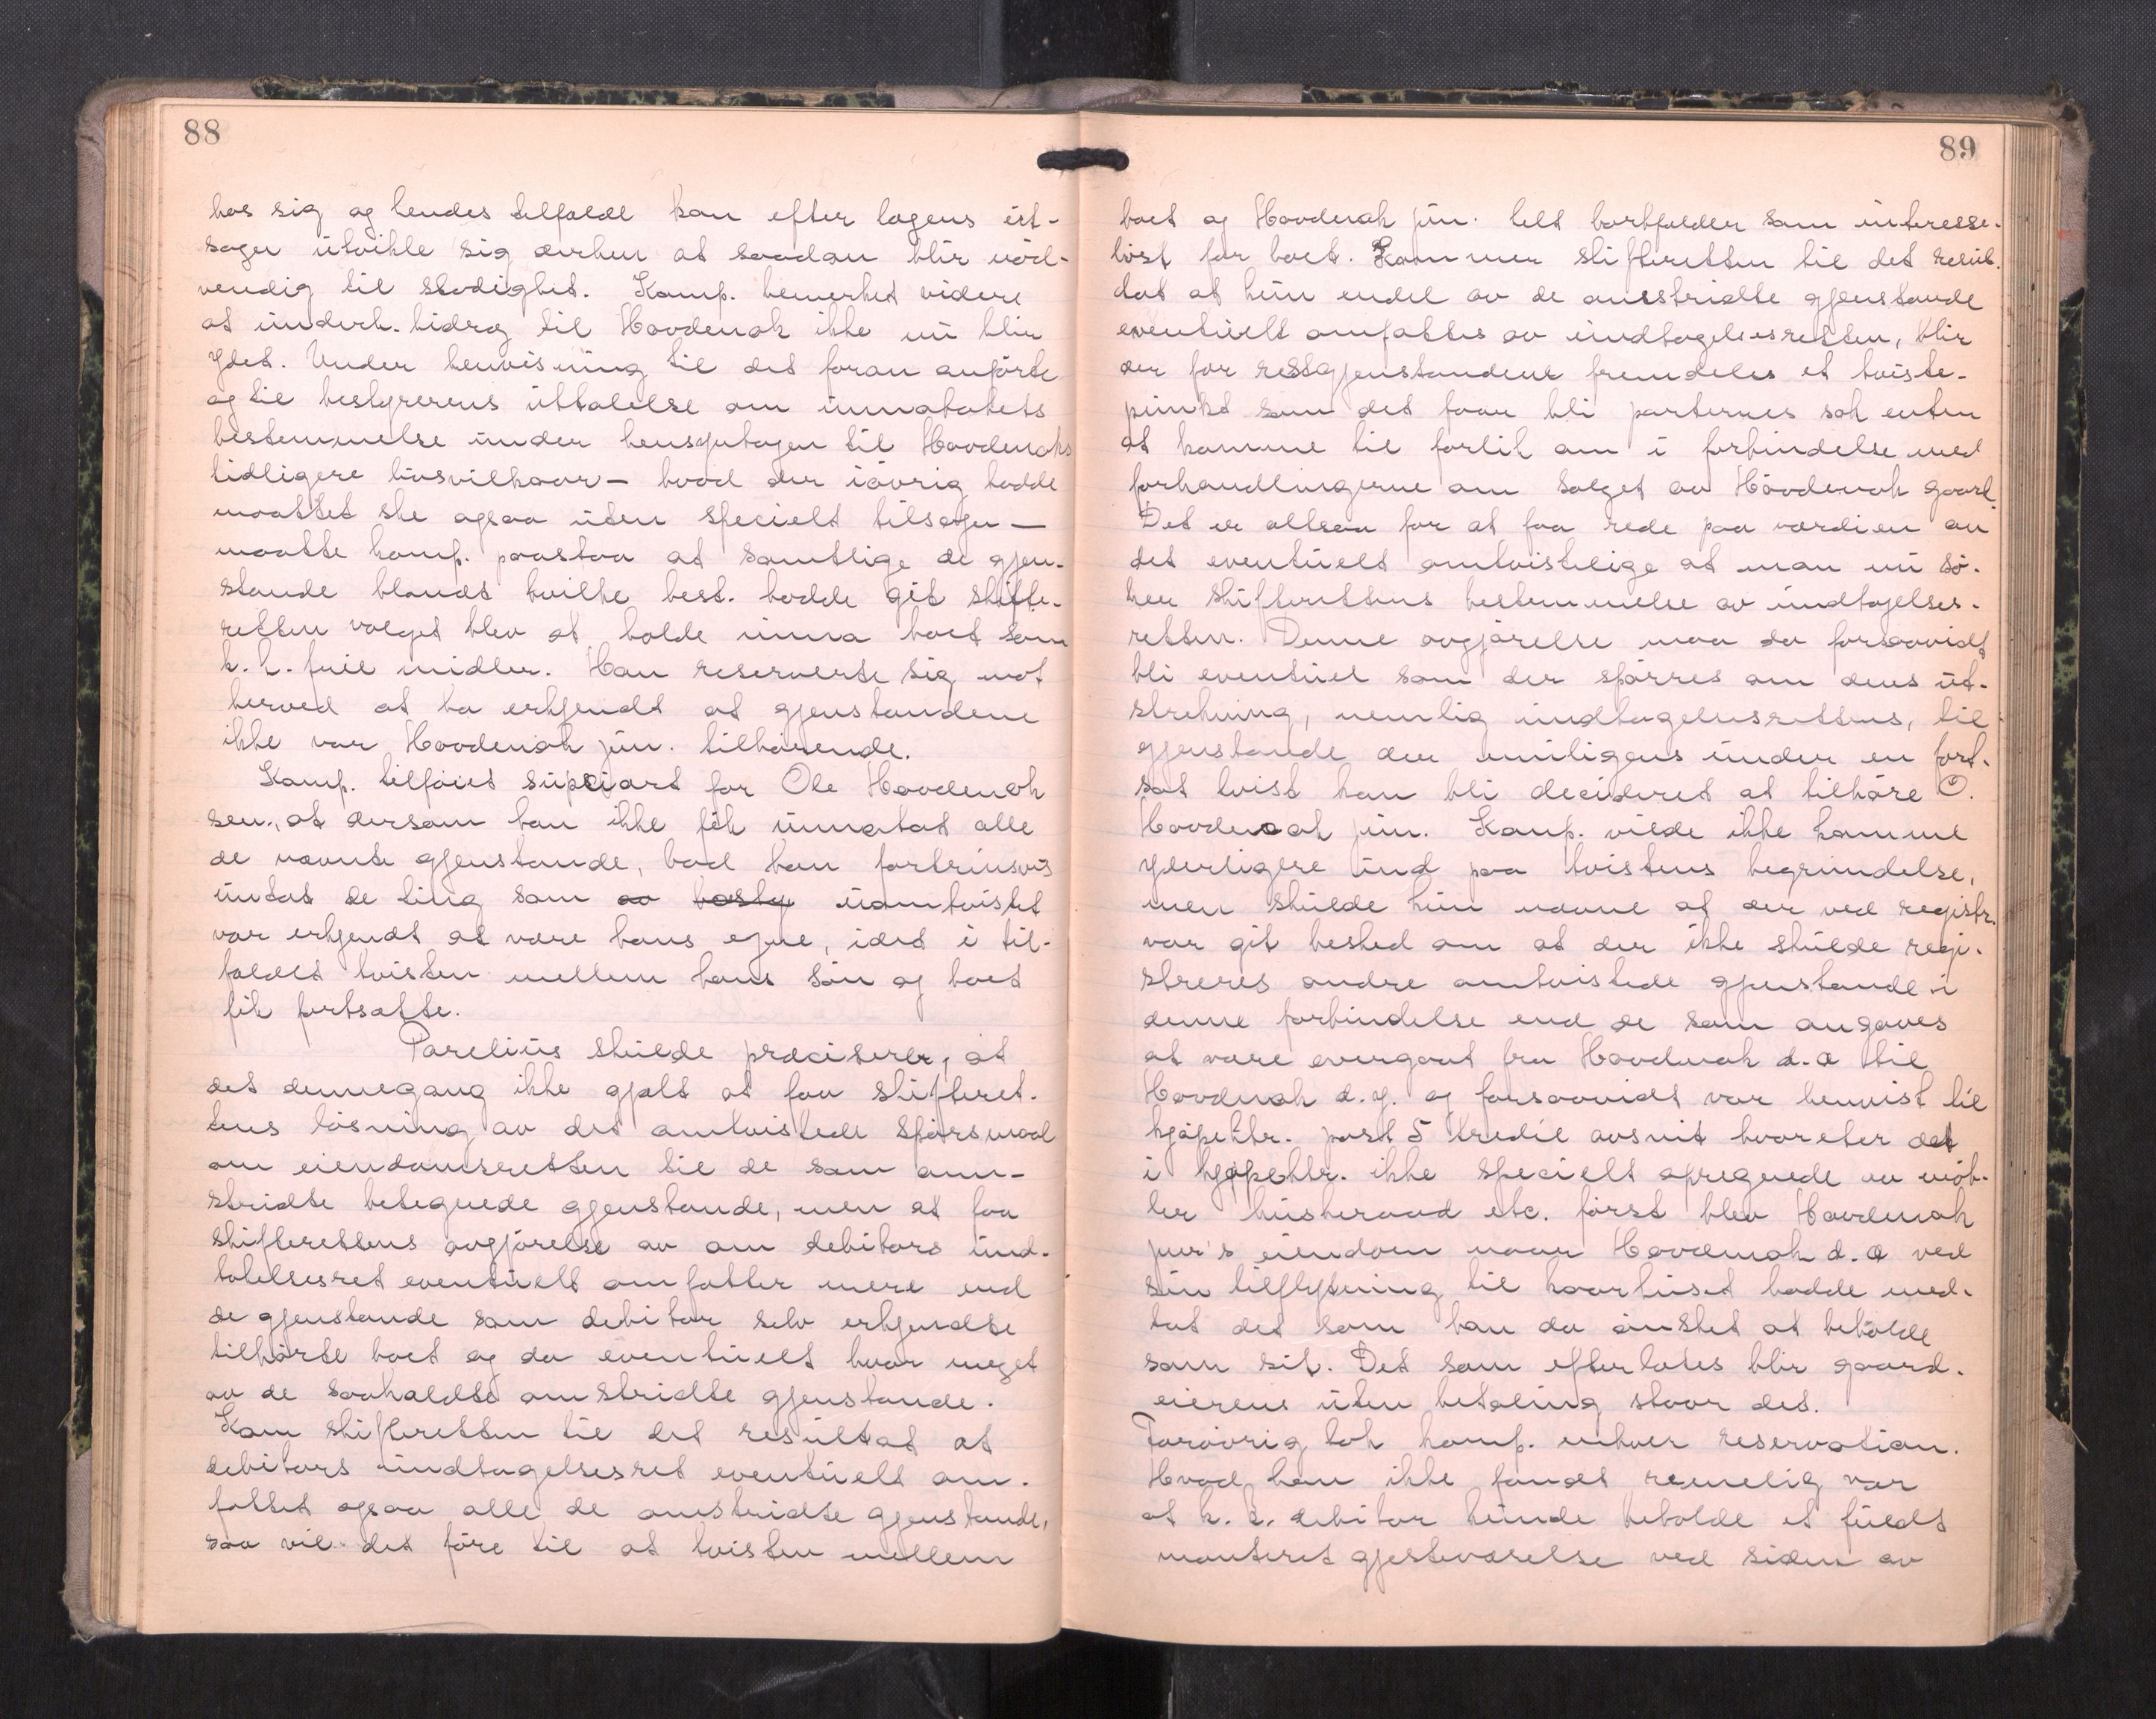 88
hos sig og hendes tilfælde kan efter lægens ut-
sagn utvikle sig derhen at saadan blir nød-
vendig til stadighet. Komp. bemerket videre
at underh. bidrag til Hovdenak ikke nu blir
ydet. Under henvisning til det foran anførte
og til bestyrerens uttalelse om unnatatets
bestemmelse under hensyntagen til Hovdenaks
tidligere livsvilkaar – hvad der iøvrig hadde
maattet ske ogsaa uten specielt tilsagn –
maatte komp. paastaa at samtlige de gjen-
stande blandt hvilke best. hadde git skifte-
retten valget blev at holde unna boet som
k. k. frie midler. Han reserverte sig mot
herved at ha erkjendt at gjenstandene
ikke var Hovdenak jun. tilhørende.
Komp. tilføiet subsidiært for Ole Hovdenak
sen., at dersom han ikke fik unnatat alle
de nævnte gjenstande, bad han fortrinsvis
undtat de ting som av uomtvistet
var erkjendt at være hans egne, idet i til-
fældet tvisten mellem hans søn og boet
fik fortsætte.
Parelius skulde præcisere, at
det dennegang ikke gjaldt at faa skifteret-
tens løsning av det omtvistede spørsmaal
om eiendomsretten til de som om-
stridte betegnede gjenstande, men at faa
skifterettens avgjørelse av om debitors und-
tagelsesret eventuelt omfatter mere end
de gjenstande som debitor selv erkjendte
tilhørte boet og da eventuelt hvor meget
av de saakaldte omstridte gjenstande.
Kom skifteretten til det resultat at
debitors undtagelsesret eventuelt om-
fattet ogsaa alle de omstridte gjenstande,
saa vil det føre til at tvisten mellem
89
boet og Hovdenak jun. helt bortfalder som interesse-
løst for boet. Kommer skifteretten til det resul-
tat at kun endel av de omstridte gjenstande
eventuelt omfattes av undtagelsesretten, blir
der for restgjenstandene fremdeles et tviste-
punkt som det faar bli parternes sak enten
at komme til forlik om i forbindelse med
forhandlingerne om salget av Hovdenak gaard.
Det er altsaa for at faa rede paa værdien av
det eventuelt omtvistelige at man nu sø-
ker skifterettens bestemmelse av undtagelses-
retten. Denne avgjørelse maa da forsaavidt
bli eventuel som der spørres om dens ut-
strekning, nemlig undtagelsesrettens, til
gjenstande der muligens under en fort-
sat tvist kan bli decideret at tilhøre O.
Hovdenak jun. Komp. vilde ikke komme
yderligere ind paa tvistens begrundelse,
men skulde kun nævne at der ved registr.
var git besked om at der ikke skulde regi-
streres andre omtvistede gjenstande i
denne forbindelse end de som angaves
at være overgaat fra Hovdenak d.æ til
Hovdenak d.y. og forsaavidt var henvist til
kjøpektr. post 5 tredie avsnit hvorefter det
i kjøpektr. ikke specielt opregnede av møb-
ler husheraad etc. først blev Hovdenak
jun's eiendom naar Hovdenak d.æ ved
sin tilflytning til kaarhuset hadde med-
tat det som han da ønsket at beholde
som sit. Det som efterlates blir gaard-
eierens uten betaling staar det.
Forøvrig tok komp. enhver reservation.
Hvad han ikke fandt rimelig var
at k. k. debitor kunde beholde et fuldt
monteret gjesteværelse ved siden av